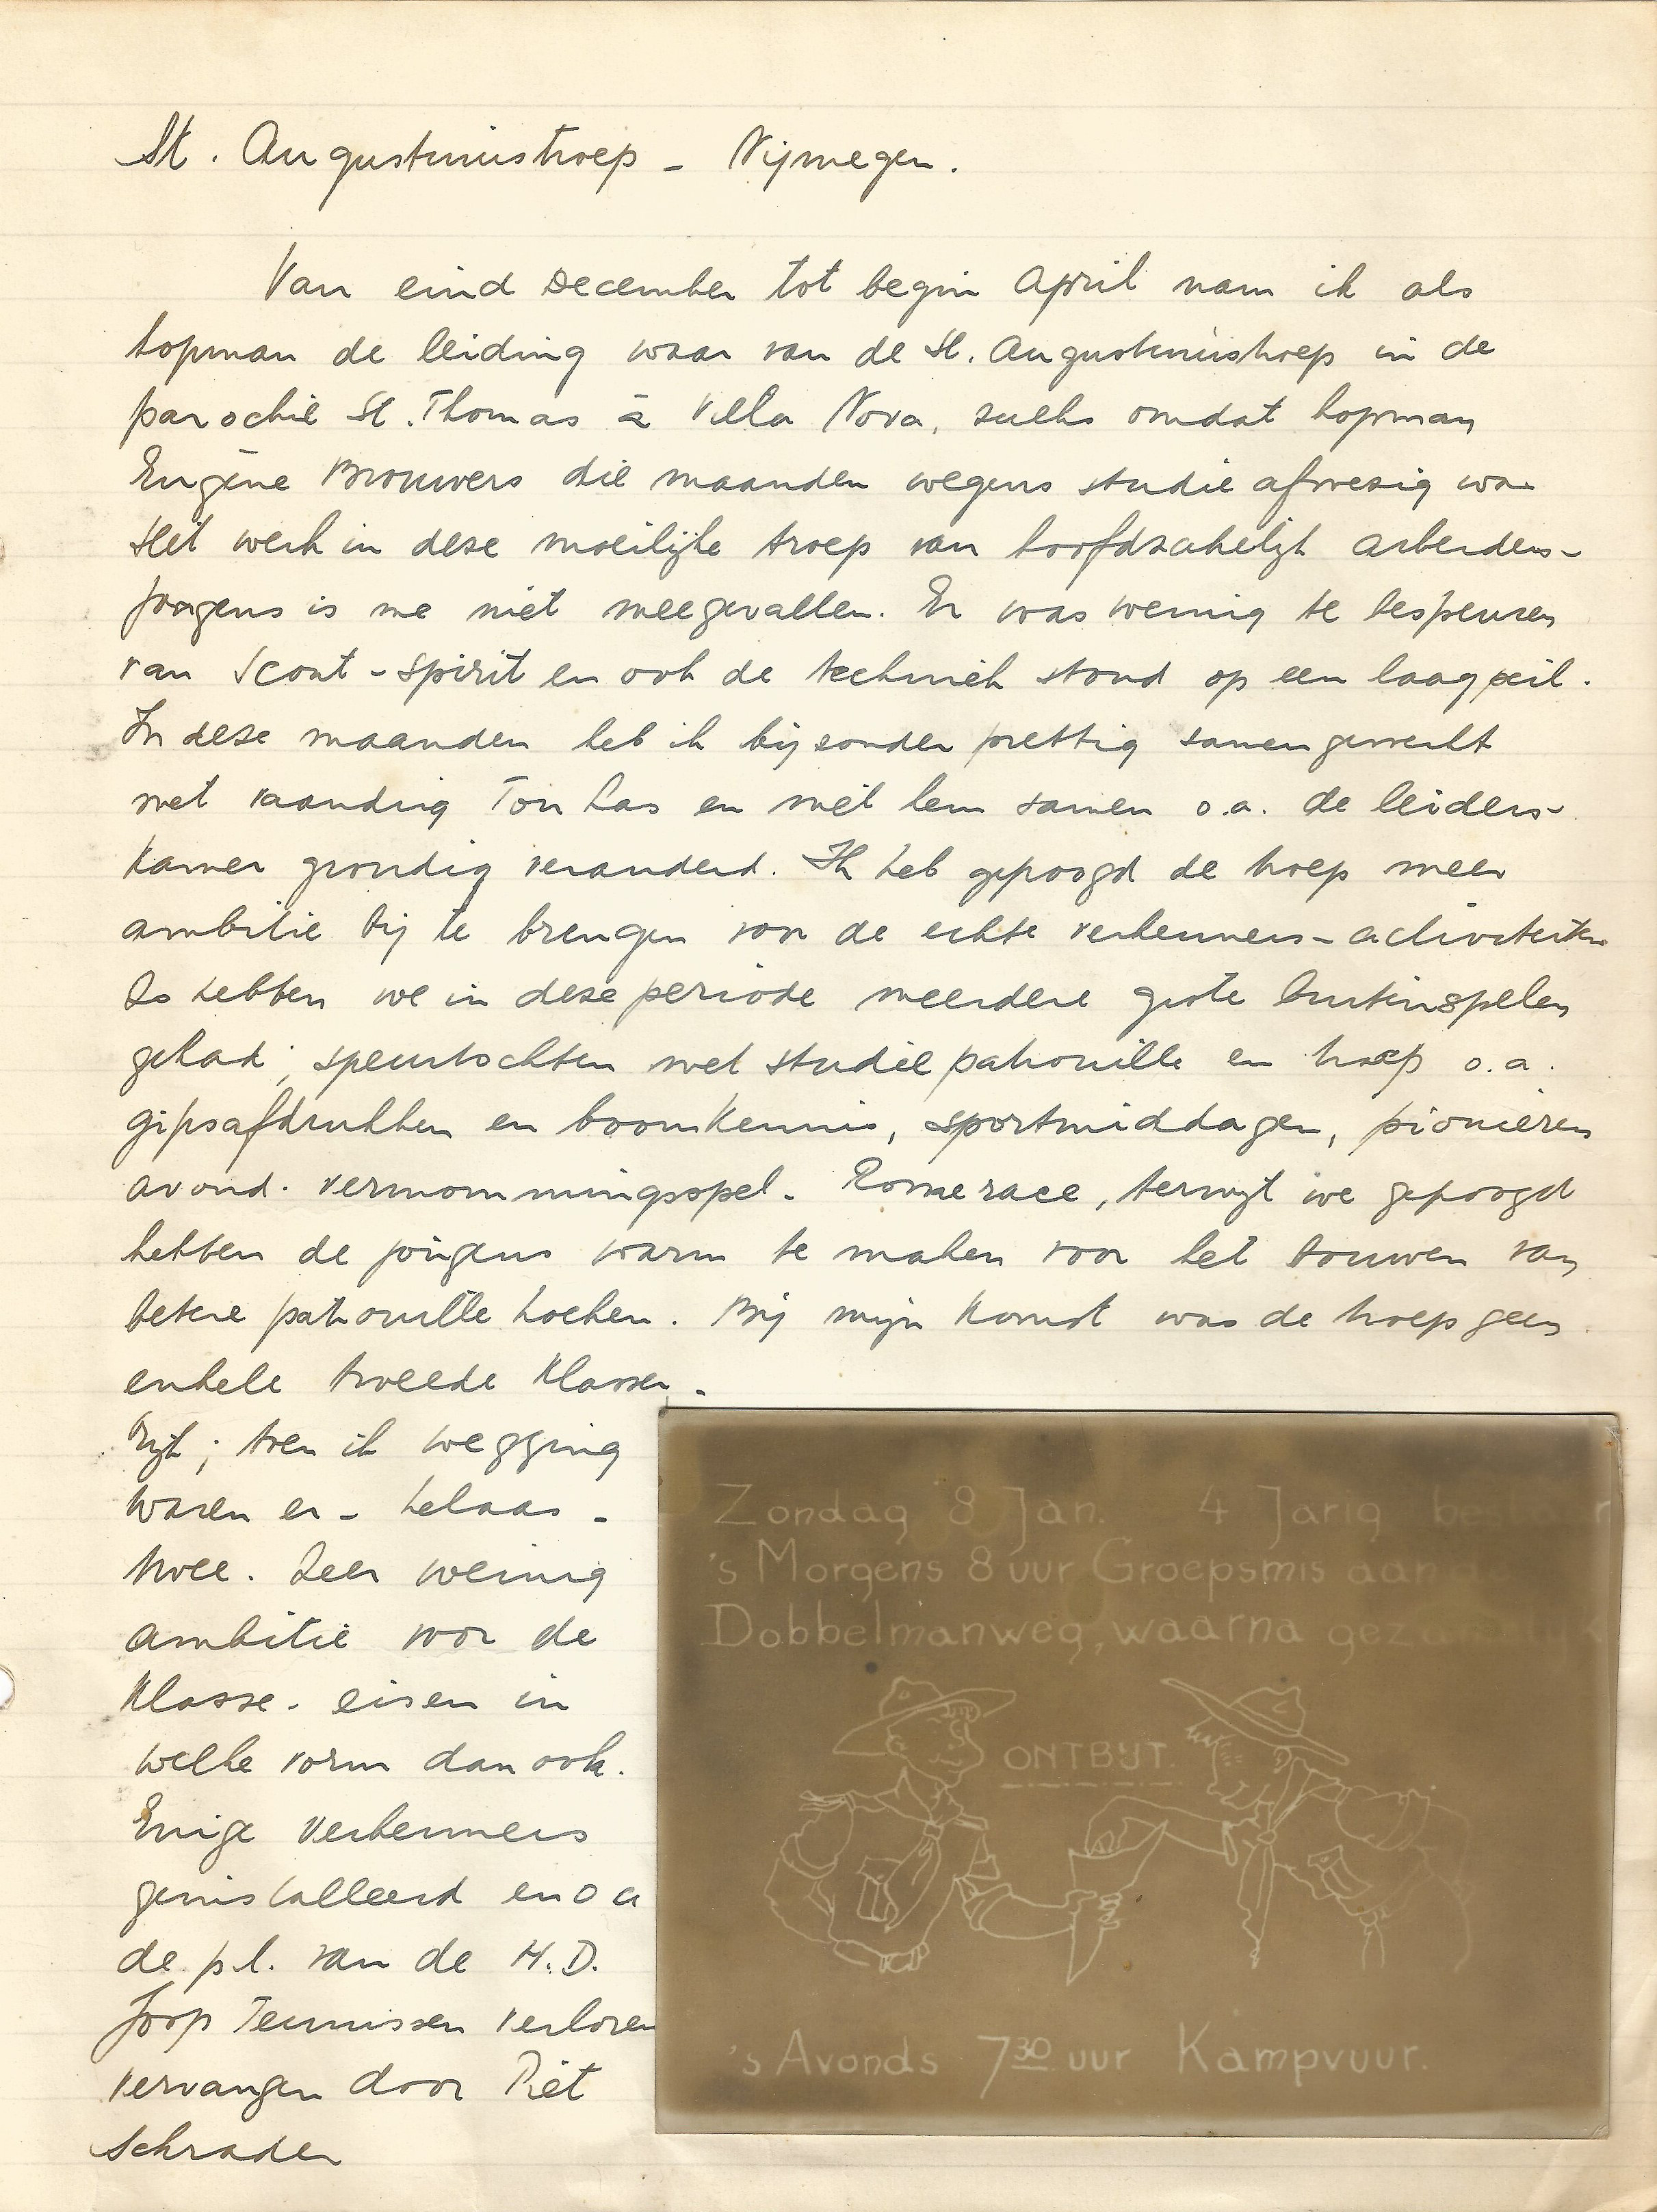 St. Augustinustroep - Nijmegen.
Van eind December tot begin April nam ik als
hopman de leiding waar van de St. Augustinustroep in de
parochie St. Thomas à Villa Nova, zulks omdat hopman
Eugène Brouwers die maanden wegens studie afwezig was
Het werk in deze moeilijke troep van hoofdzakelijk arbeiders-
jongens is me niet meegevallen. Er was weinig te bespeuren
van Scout-spirit en ook de techniek stond op een laag peil.
In deze maanden heb ik bijzonder prettig samengewerkt
met vaandrig Ton Las en met hem samen o.a. de leiders-
kamer grondig veranderd. Ik heb gepoogd de troep meer
ambitie bij te brengen voor de echte verkenners-activiteiten
Zo hebben we in deze periode meerdere grote buitenspelen
gehad; speurtochten met studie patrouille en troep o.a.
gipsafdrukken en boomkennis, sportmiddagen, pionieren
avond. vermommingsspel. Romerace, terwijl we gepoogd
hebben de jongens warm te maken voor het bouwen van
betere patrouille hoeken. Bij mijn komst was de troep geen
enkele tweede klasser
rijk; toen ik wegging
waren er - helaas -
twee. Zeer weinig
ambitie voor de
klasse-eisen in
welke vorm dan ook.
Enige verkenners
geinstalleerd en o a
de p.l. van de H.D.
Joop Teunissen verloren
vervangen door Piet
Schrader
Zondag 8 Jan. 4 Jarig
's Morgens 8 uur Groepsmis aan
Dobbelmanweg, waarna
ONTBIJT.
's Avonds 7³⁰ uur Kampvuur.